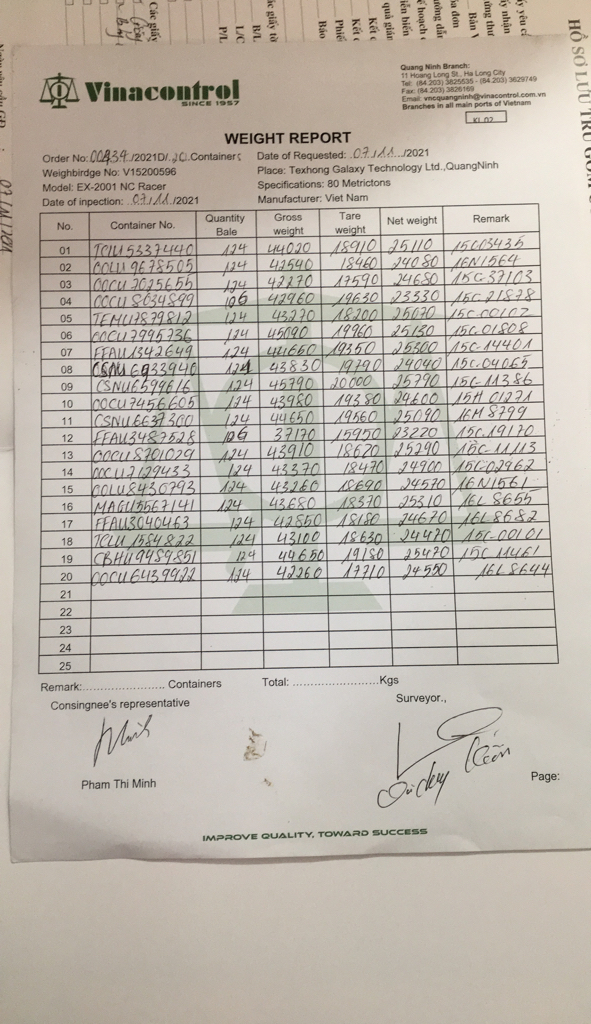 Vinacontrol
SINCE 1957
Quang Ninh Branch:
11 Hoang Long St., Ha Long City
Tel: (84.203) 3825535 - (84.203) 3629749
Fax: (84.203) 3826169
Email: vncquangninh@vinacontrol.com.vn
Branches in all main ports of Vietnam
KL 02
WEIGHT REPORT
Order No: 00939/2021D/ 20 Containers Date of Requested: 07/11/2021
Weighbirdge No: V15200596 Place: Texhong Galaxy Technology Ltd.,QuangNinh
Model: EX-2001 NC Racer Specifications: 80 Metrictons
Date of inpection: 07/11/2021 Manufacturer: Viet Nam
No. Container No. Quantity Bale Gross weight Tare weight Net weight Remark
01 TCLU5337440 124 44020 18910 25110 15C03435
02 COLU9678505 124 42540 18460 24080 16N1564
03 OOCU7025655 124 42270 17590 24680 15C-37103
04 OOCU8034899 106 42960 19630 23330 15C-21878
05 TEMU7879812 124 43270 18200 25070 15C-00107
06 OOCU7995736 124 45090 19960 25130 15C-01808
07 FFAU1342649 124 44650 19350 25300 15C-14401
08 CSNU6933940 124 43830 19790 24040 15C-04065
09 CSNU6599616 124 45790 20000 25790 15C-11386
10 OOCU7456605 124 43980 19380 24600 15H 01271
11 CSNU6637300 124 44650 19560 25090 16M8799
12 FFAU3487528 106 37170 13950 23220 15C-19170
13 OOCU8701029 124 43910 18620 25290 15C-11113
14 OOCU7129433 124 43370 18470 24900 15C-02962
15 COLU8430793 124 43260 18690 24570 16N1561
16 MAGU5567141 124 43680 18370 25310 16L8655
17 FFAU3040463 124 42850 18180 24670 16L8682
18 TCLU1584822 124 43100 18630 24470 15C-00101
19 CBHU9489851 124 44650 19180 25470 15C 11461
20 OOCU6439922 124 42260 17710 24550 16L8644
21
22
23
24
25
Remark:........................ Containers Total: ........................Kgs
Consingnee's representative Surveyor.,
Pham Thi Minh
Page:
IMPROVE QUALITY, TOWARD SUCCESS